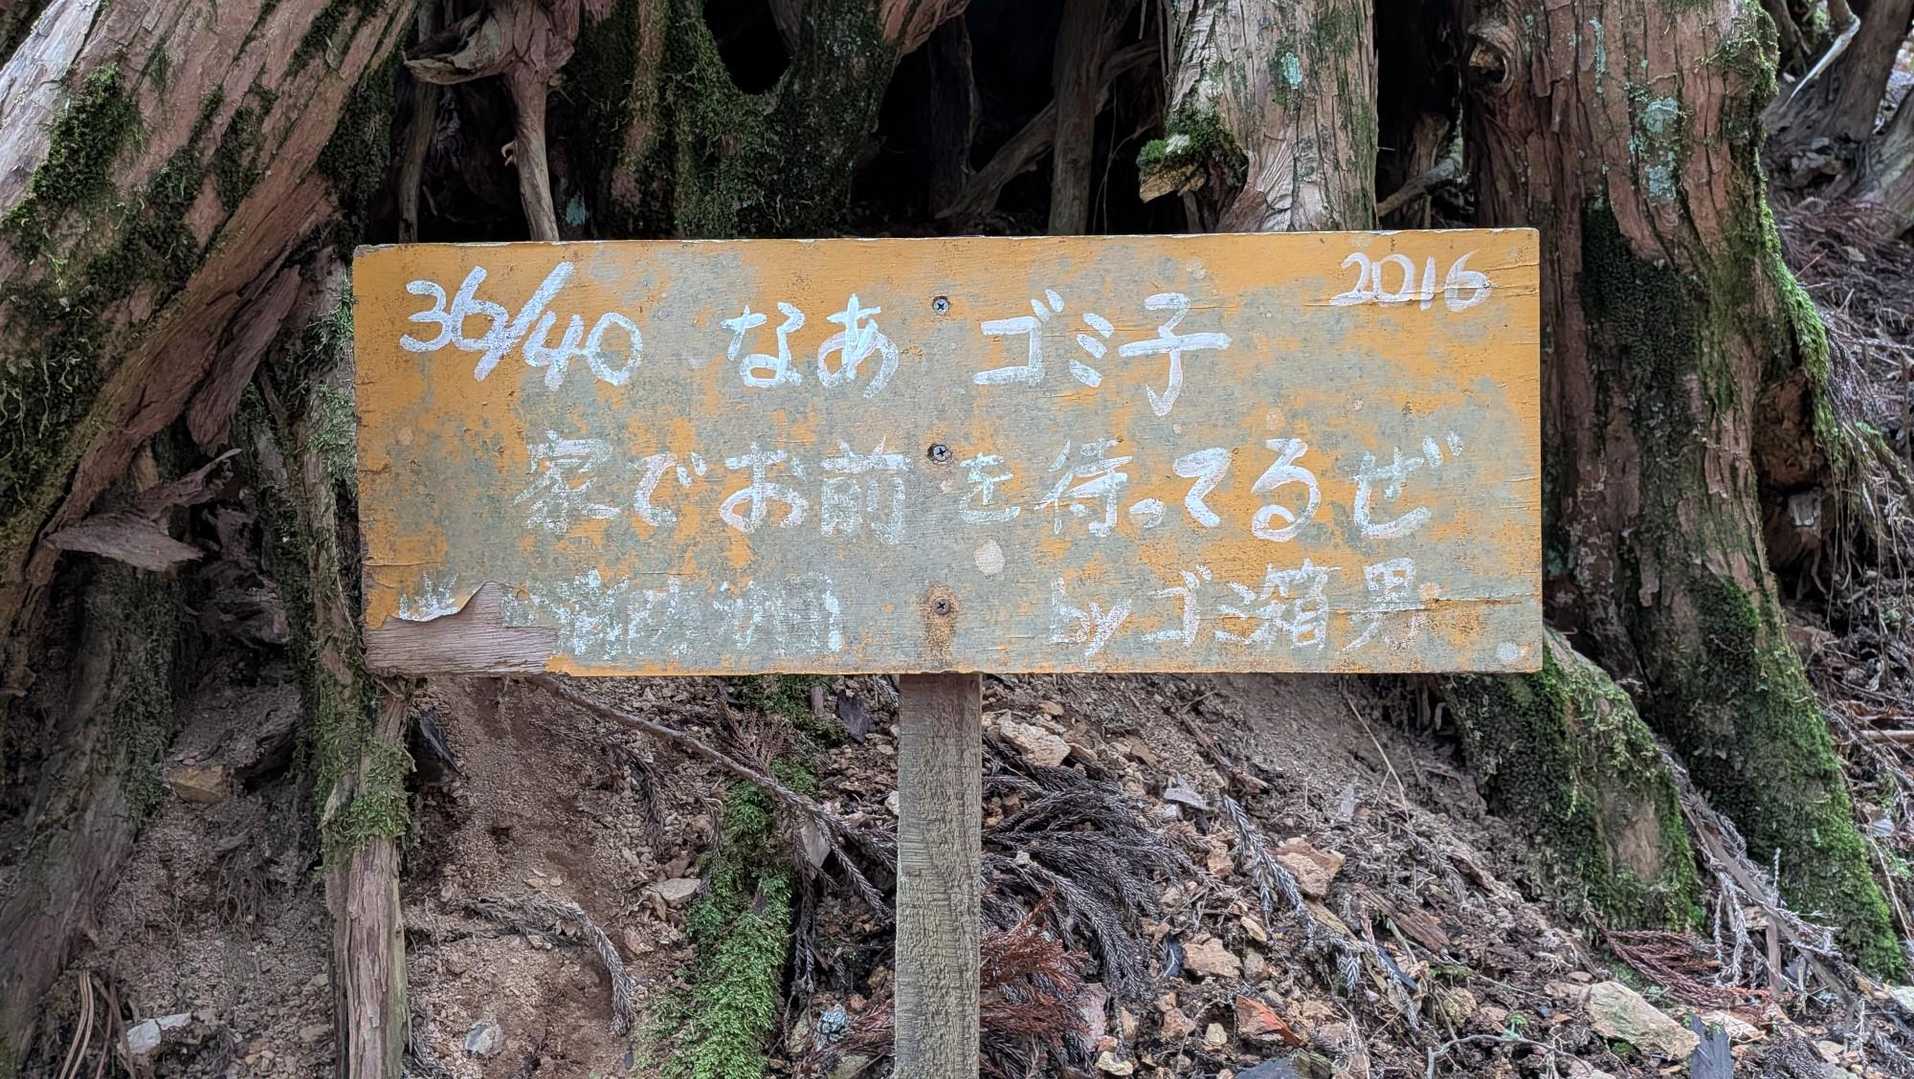 36/40 なあ ゴミ子 2016
家でお前を待ってるぜ
byゴミ箱男